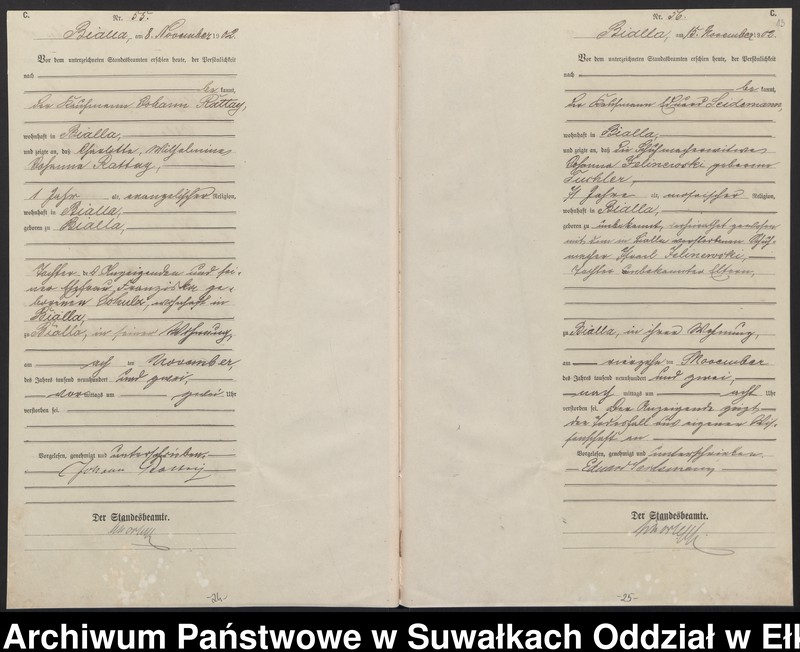 C.
Nr. 55.
Bialla, am 8. November 1902
Vor dem unterzeichneten Standesbeamten erschien heute, der Persönlichkeit
nach
be kannt,
der Kaufmann Johann Rattay,
wohnhaft in Bialla,
und zeigte an, daß Charlotte, Wilhelmine,
Johanna Rattay,
1 Jahr alt, evangelischer Religion,
wohnhaft in Bialla,
geboren zu Bialla,
Tochter des Anzeigenden und sei-
ner Ehefrau, Franziska ge-
borenen Sokula, wohnhaft in
Bialla,
zu Bialla, in seiner Wohnung,
am acht ten November,
des Jahres tausend neunhundert und zwei,
vor mittags um zwei Uhr
verstorben sei.
Vorgelesen, genehmigt und unterschrieben.
Johann
Der Standesbeamte.
-24-
Nr. 56.
C.
13
Bialla, am 15. November 1902.
Vor dem unterzeichneten Standesbeamten erschien heute, der Persönlichkeit
nach
be kannt,
der Kaufmann Eduard Seidemann,
wohnhaft in Bialla,
und zeigte an, daß die Schuhmacherwitwe
Johanna Jelinewski geborene
71 Jahre alt, mosaischer Religion,
wohnhaft in Bialla,
geboren zu unbekannt, verheirathet gewesen
mit dem in Bialla verstorbenen Schuh-
macher Israel Jelinewski,
Tochter unbekannter Eltern,
zu Bialla, in ihrer Wohnung,
am vierzehn ten November
des Jahres tausend neunhundert und zwei,
nach mittags um acht Uhr
verstorben sei. Der Anzeigende zeigt
den Todesfall aus eigener Wis-
senschaft an
Vorgelesen, genehmigt und unterschrieben.
Eduard Seidemann
Der Standesbeamte.
-25-
Archiwum Państwowe w Suwałkach Oddział w Ełk